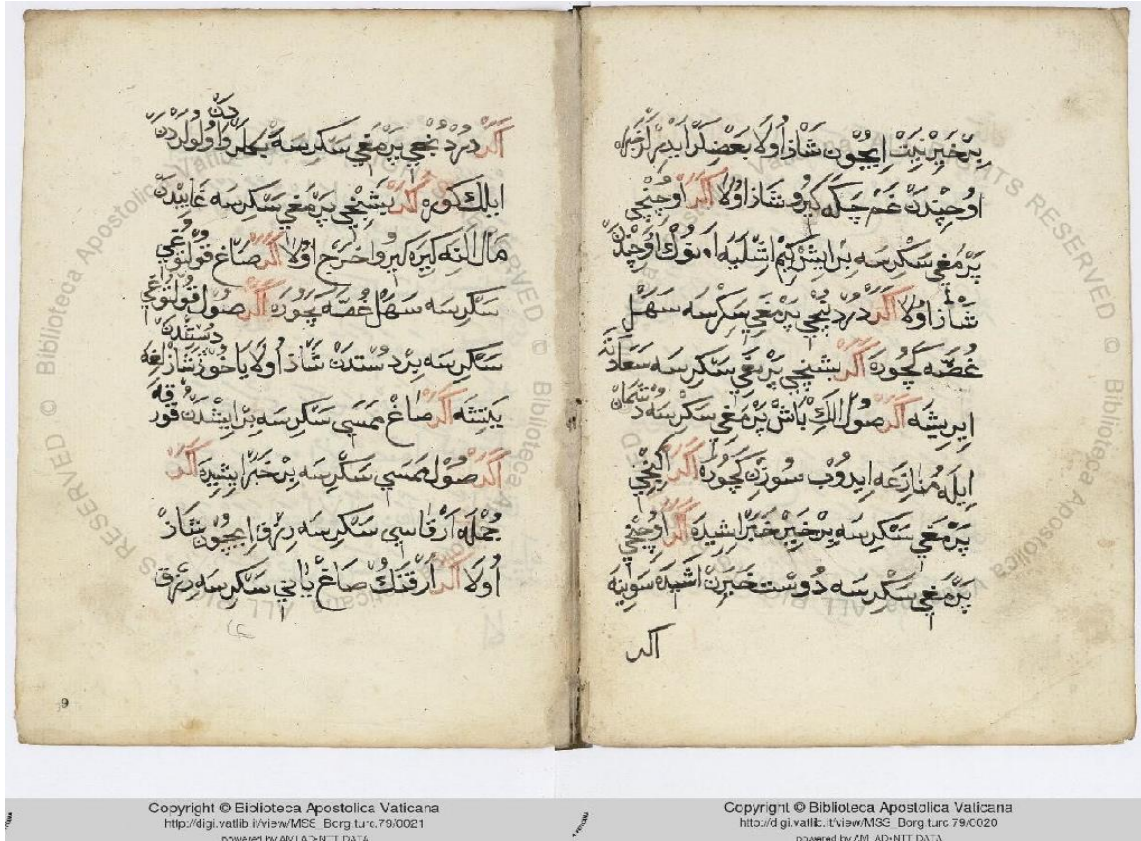 بر خیر نیت ایچون شاذ اولا بعضلر ایدر لر
اوچندن غم چکه کیرو شاذ اولا اکر اوچنجی
پرمغی سکرسه بر ایش کم اشلیه انوك اوچندن
شاذ اولا اکر دردنجی پرمغی سکرسه سهل
غصه کچوره اکر بشنجی پرمغی سکرسه سعادته
ایریشه اکر صول الك باش پرمغی سکرسه دشمان
ایله منازعه ایدوب سوزن کچوره اکر ایکنجی
پرمغی سکرسه بر خیر خبر اشیده اکر اوچنجی
پرمغی سکرسه دوست خبرن اشیده سوینه
اکر
اکر دردنجی پرمغی سکرسه
ایلك کوره اکر بشنجی پرمغی سکرسه غایبدن
مال النه کیره کیرو اخرج اولا اکر صاغ قولتوغی
سکرسه سهل غصه کچوره اکر صول قولتوغی
سکرسه بر دوستدن شاذ اولا یاخوذ شاذلغه
یتشه اکر صاغ ممسی سکرسه بر ایشدن قورقه
اکر صول ممسی سکرسه بر خبر ایشیده اکر
جمله ارقاسی سکرسه رزق ایچون شاذ
اولا اکر ارقنك صاغ یانی سکرسه رزق
9
Copyright © Biblioteca Apostolica Vaticana
http://digi.vatlib.it/view/MSS_Borg.turc.79/0021
powered by AMLAD-NTT DATA
Copyright © Biblioteca Apostolica Vaticana
http://digi.vatlib.it/view/MSS_Borg.turc.79/0020
powered by AMLAD-NTT DATA